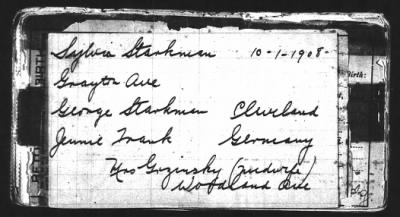 Sylvia Starkman 10-1-1908-
Grayton Ave
George Starkman Cleveland
Jennie Frank Germany
Mrs Grzinsky (midwife)
Woodland Ave
Birth: